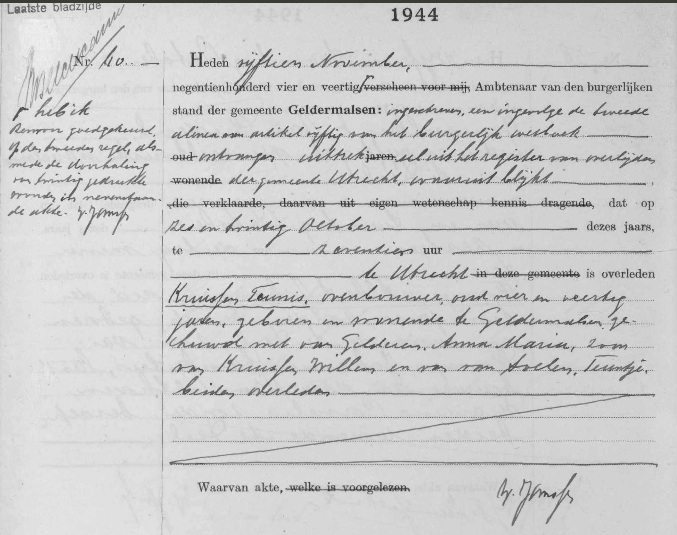 Laatste bladzijde
1944
Nr. 40.
Heden vijftien November,
negentienhonderd vier en veertig verscheen voor mij, Ambtenaar van den burgerlijken
stand der gemeente Geldermalsen: ingeschreven, een ingevolge de tweede
alinea van artikel vijftig van het burgerlijk wetboek
oud ontvangen uittrek jaren sel uit het register van overlijden
wonende der gemeente Utrecht, waaruit blijkt
die verklaarde, daarvan uit eigen wetenschap kennis dragende, dat op
zes en twintig October dezes jaars,
te zeventien uur
te Utrecht in deze gemeente is overleden
Kruissen Teunis, ovenbouwer, oud vier en veertig
jaren, geboren en wonende te Geldermalsen ge-
huwd met van Gelderen, Anna Maria, zoon
van Kruissen Willem en van van Avelen, Teuntje,
beiden overleden
Waarvan akte, welke is voorgelezen.
heb ik
goedgekeurd,
op den tweeden regel, als-
mede de doorhaling
van twintig gedrukte
woorden in nevenstaan-
de akte.